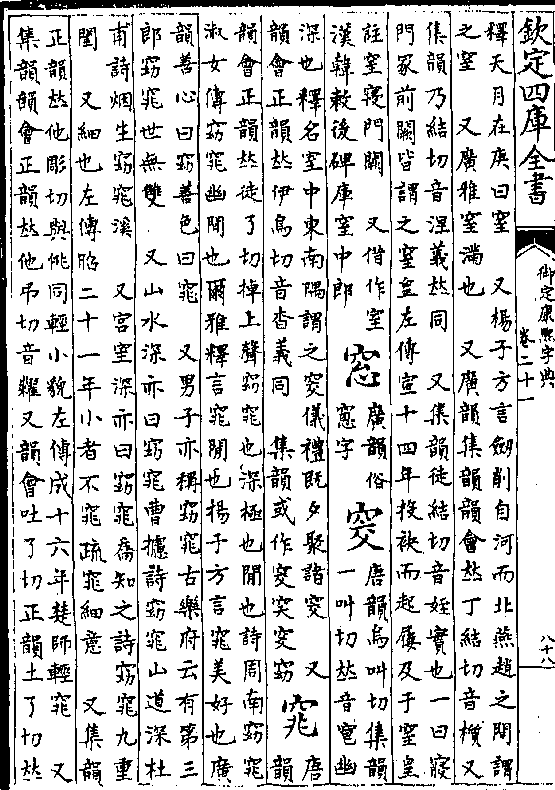 欽定四庫全書
御定康熙字典
卷二十一
釋天月在庚曰窒　又楊子方言劒削自河而北燕趙之間謂
之窒　又廣雅窒滿也　又廣韻集韻韻會𠀤丁結切音㮞又
集韻乃結切音涅義𠀤同　又集韻徒結切音姪實也一曰寢
門冢前闕皆謂之窒皇左傳宣十四年投袂而起屨及于窒皇
註窒寢門闕　又借作室
漢韓敕後碑庫窒中郎
窓
廣韻俗
窻字
窔
唐韻烏叫切集韻
一叫切𠀤音窅幽
深也釋名室中東南隅謂之窔儀禮既夕聚諸窔　又
韻會正韻𠀤伊鳥切音杳義同　集韻或作㝔宎穾窈
窕
唐
韻
韻會正韻𠀤徒了切掉上聲窈窕也深極也閒也詩周南窈窕
淑女傳窈窕幽閒也爾雅釋言窕閒也揚子方言窕美好也廣
韻善心曰窈善色曰窕　又男子亦稱窈窕古樂府云有第三
郎窈窕世無雙　又山水深亦曰窈窕曹攄詩窈窕山道深杜
甫詩烟生窈窕溪　又宮室深亦曰窈窕喬知之詩窈窕九重
閨　又細也左傳昭二十一年小者不窕疏窕細意　又集韻
正韻𠀤他彫切與佻同輕小貌左傳成十六年楚師輕窕　又
集韻韻會正韻𠀤他弔切音糶又韻會吐了切正韻土了切𠀤